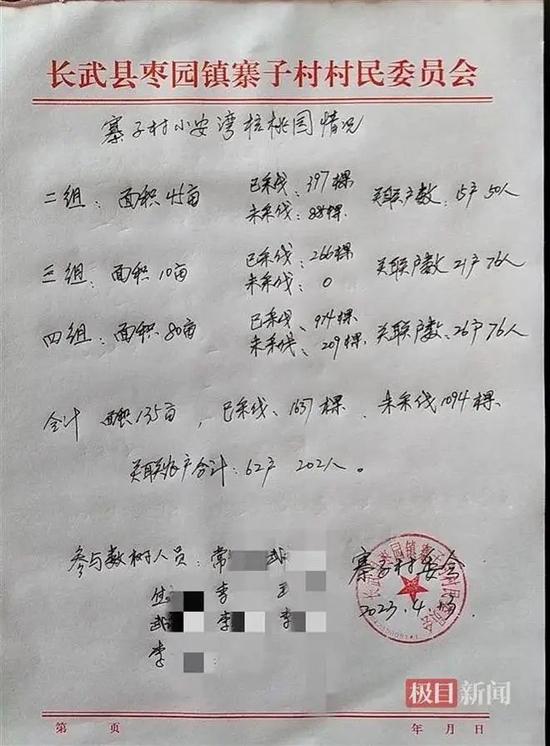 长武县枣园镇寨子村村民委员会
寨子村小安湾核桃园情况
已采伐:397棵
二组:面积45亩 关联户数:15户50人
未采伐:885棵
已采伐:266棵
三组:面积10亩 关联户数21户76人
未采伐:0
已采伐:974棵
四组:面积80亩 关联户数:26户76人
未采伐:209棵
合计 面积135亩,已采伐:1637棵,未采伐1094棵
关联农户合计:62户 202人。
参与数树人员:常 武
寨子村委会
李 王
2023.4.
武 李 李
李
极目新闻
第 页 年 月 日